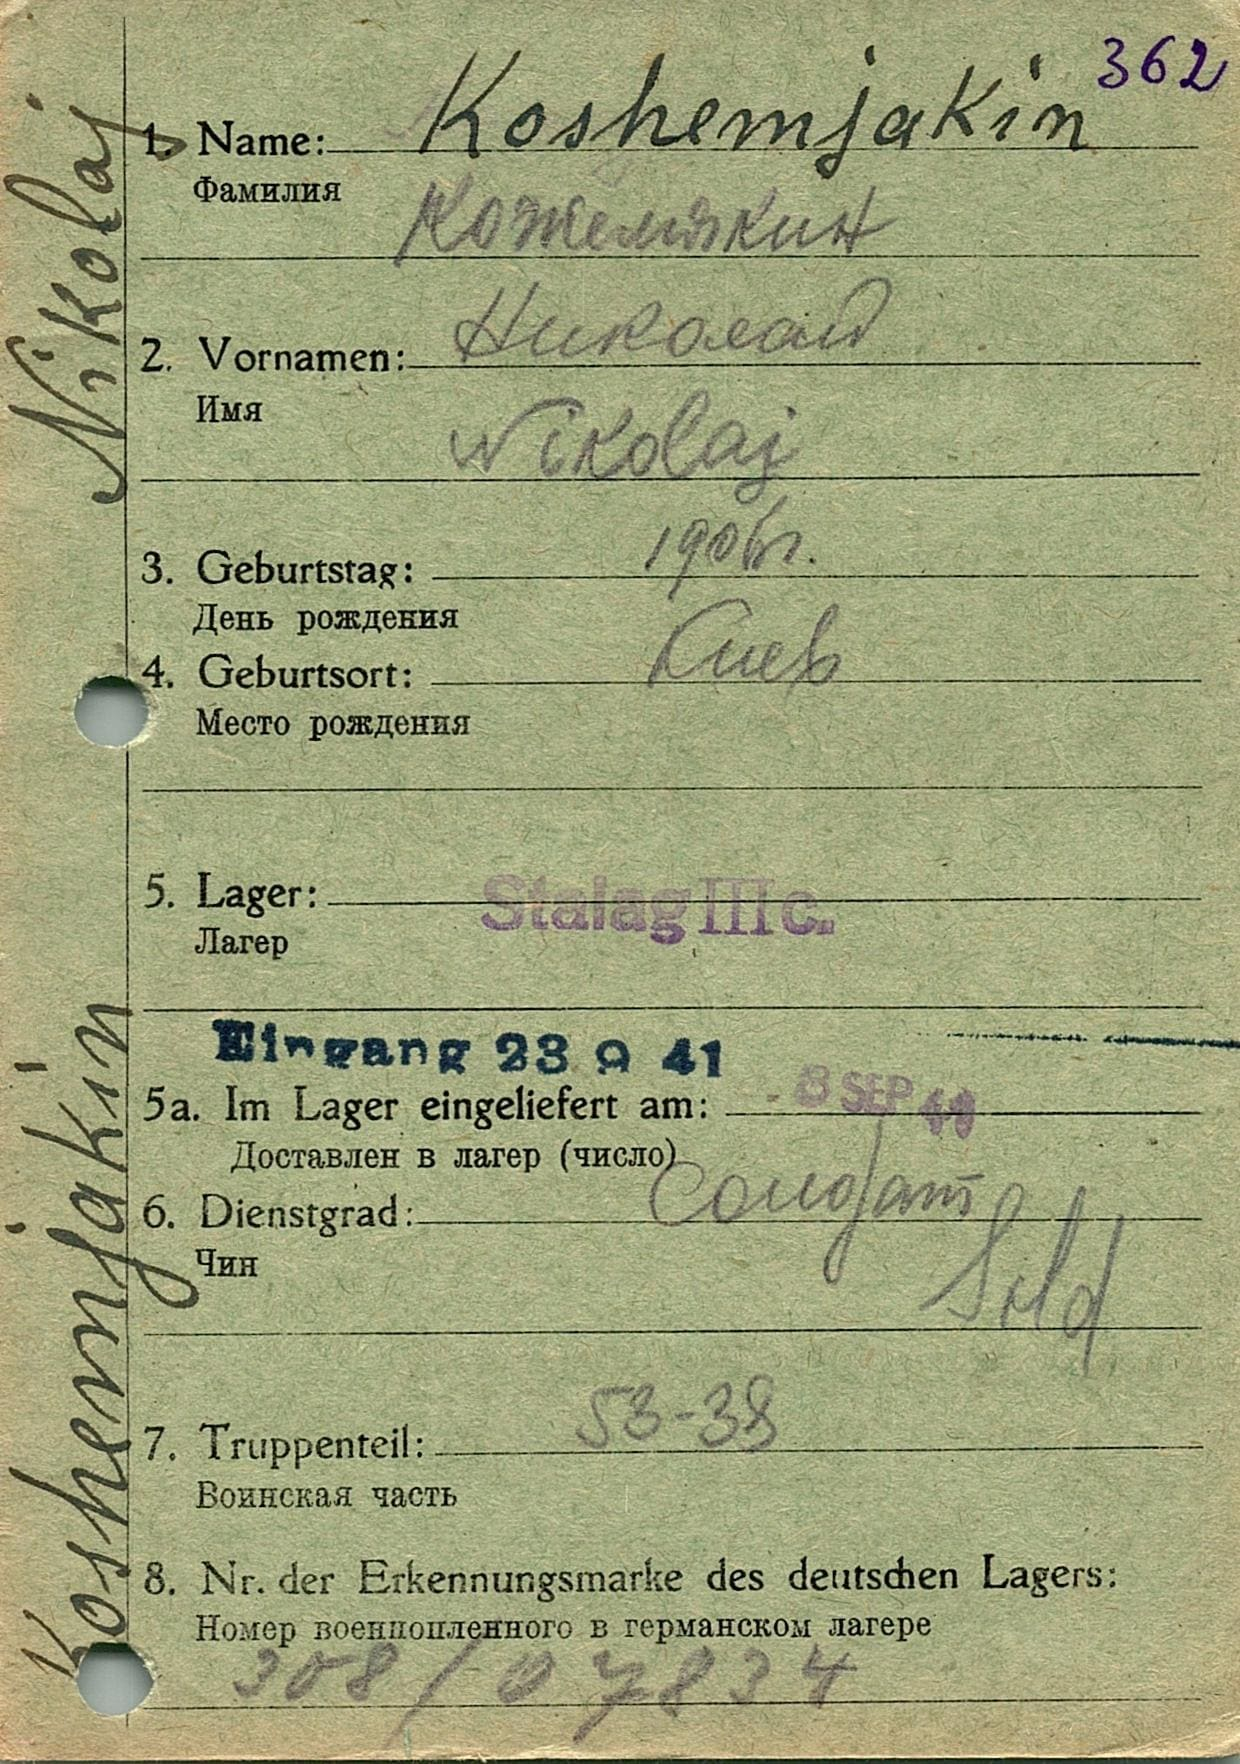 362
1. Name: Koshemjakin
Фамилия
Кожемякин
Николай
2. Vornamen:
Имя
Nikolaj
3. Geburtstag: 1906г.
День рождения
4. Geburtsort: Киев
Место рождения
5. Lager: Stalag III c.
Лагер
Eingang 23 9 41
5a. Im Lager eingeliefert am: 8 SEP 41
Доставлен в лагер (число)
6. Dienstgrad: Солдат
Чин
Sold
7. Truppenteil: 53-38
Воинская часть
8. Nr. der Erkennungsmarke des deutschen Lagers:
Номер военнопленного в германском лагере
308/07834
Koshemjakin Nikolaj